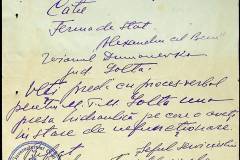 Catre
Ferma de Stat
Alexandru cel Bun
Raionul Dumanovka
Jud. Golta
Veti preda cu proces verbal
pentru Golta una
presa hidraulica pe care o aveti
in stare de nefunctionare.
Seful serviciului